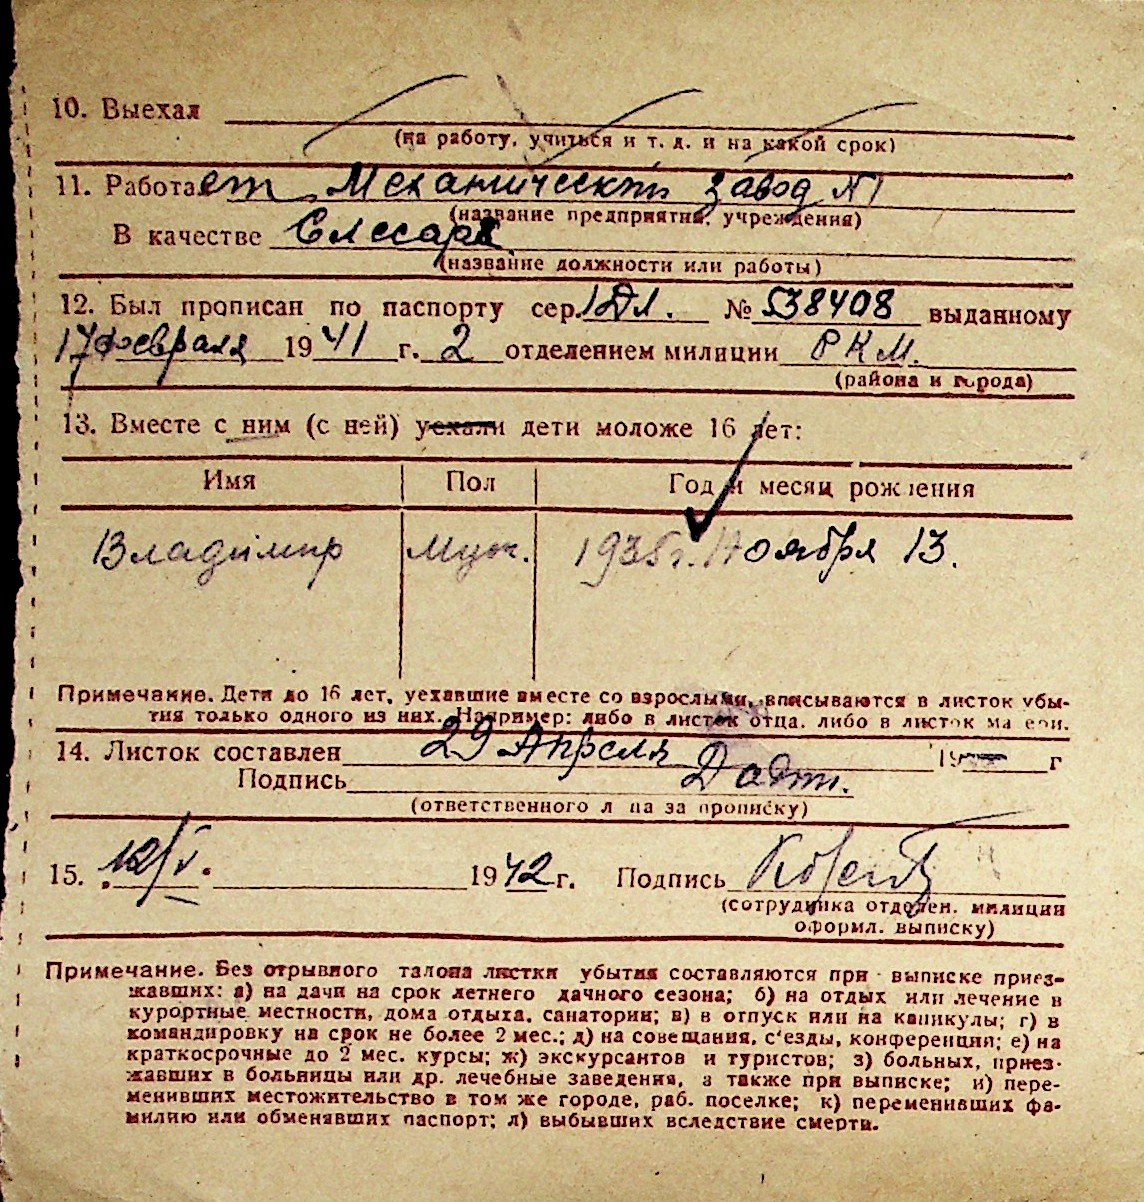 10. Выехал
(на работу, учиться и т. д. и на какой срок)
11. Работает Механический завод №1
(название предприятия, учреждения)
В качестве Слесаря
(название должности или работы)
12. Был прописан по паспорту сер. IДЛ. № 538408 выданному
17 февраля 1941 г. 2 отделением милиции РКМ.
(района и города)
13. Вместе с ним (с ней) уехали дети моложе 16 лет:
Имя Пол Год и месяц рождения
Владимир Муж. 1935г. Ноября 13.
Примечание. Дети до 16 лет, уехавшие вместе со взрослыми, вписываются в листок убы-
тия только одного из них. Например: либо в листок отца, либо в листок матери.
14. Листок составлен 29 Апреля 19 г
Подпись
(ответственного лица за прописку)
15. 12/V. 1942 г. Подпись
(сотрудника отделен. милиции
оформл. выписку)
Примечание. Без отрывного талона листки убытия составляются при выписке приез-
жавших: а) на дачи на срок летнего дачного сезона; б) на отдых или лечение в
курортные местности, дома отдыха, санатории; в) в отпуск или на каникулы; г) в
командировку на срок не более 2 мес.; д) на совещания, с'езды, конференции; е) на
краткосрочные до 2 мес. курсы; ж) экскурсантов и туристов; з) больных, приез-
жавших в больницы или др. лечебные заведения, а также при выписке; и) пере-
менивших местожительство в том же городе, раб. поселке; к) переменивших фа-
милию или обменявших паспорт; л) выбывших вследствие смерти.